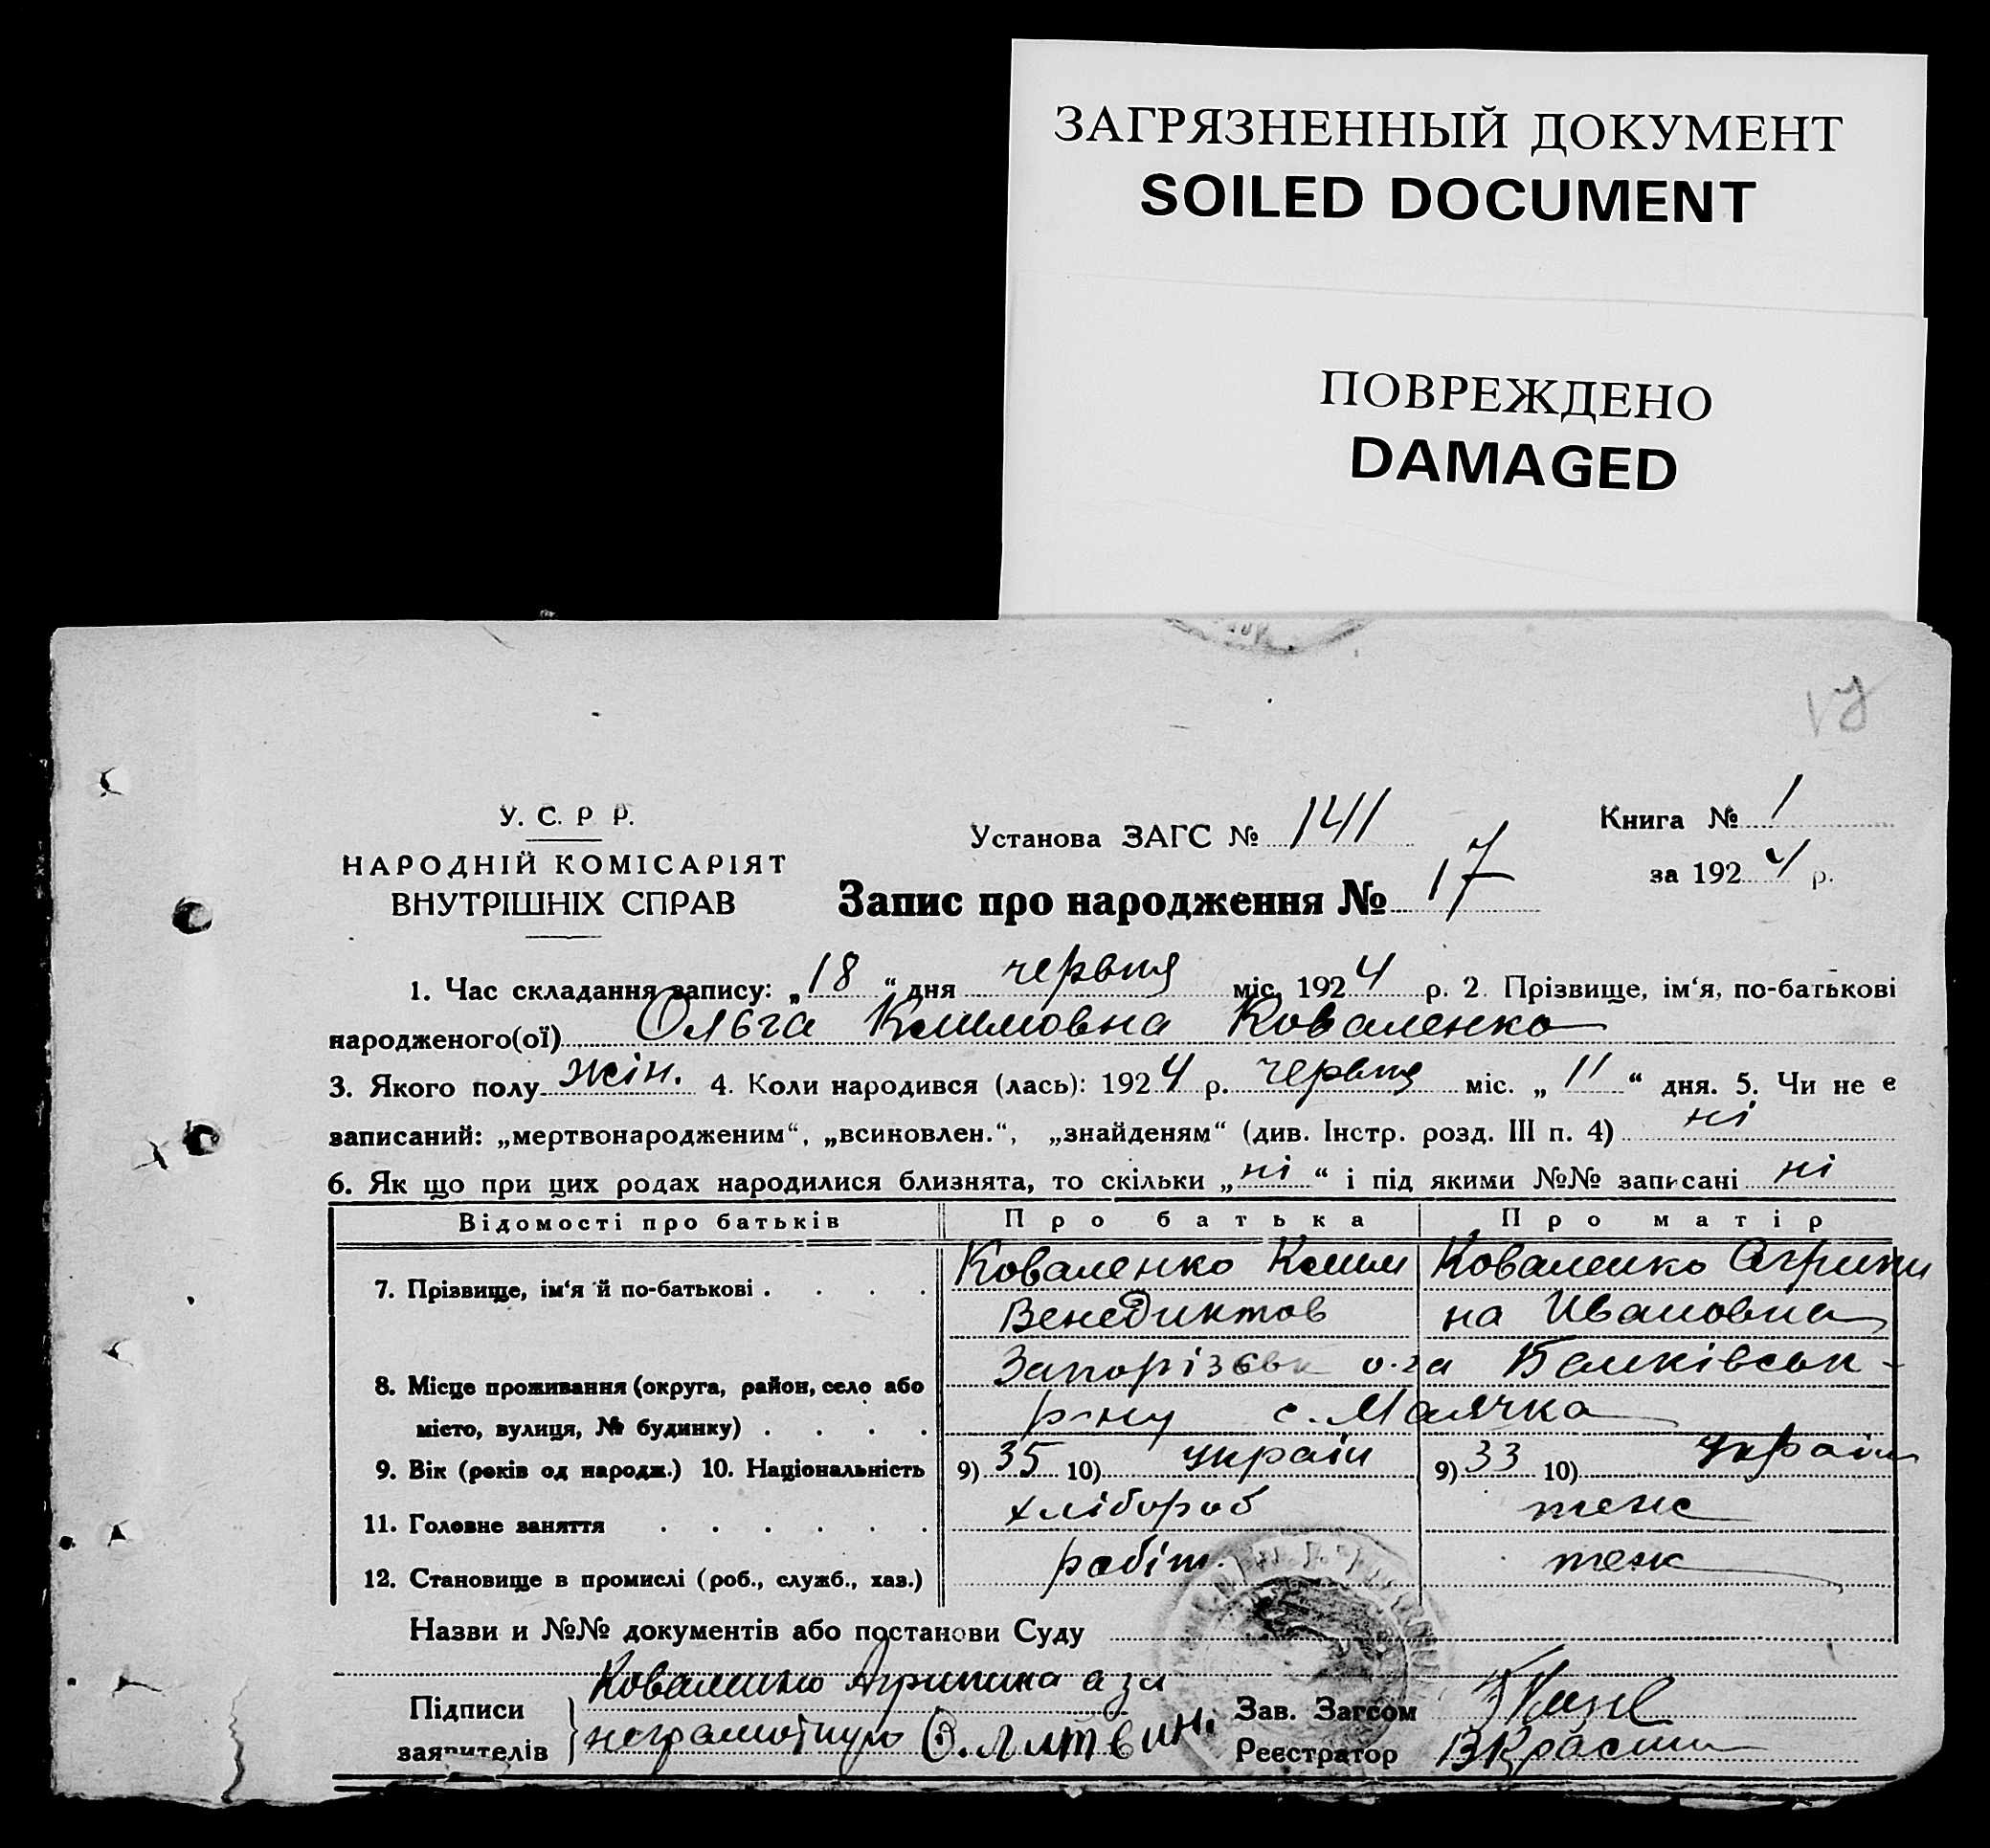 ЗАГРЯЗНЕННЫЙ ДОКУМЕНТ
SOILED DOCUMENT
ПОВРЕЖДЕНО
DAMAGED
17
У. С. Р Р.
Установа ЗАГС № 141
Книга № 1
НАРОДНІЙ КОМІСАРІЯТ
за 1924 р.
ВНУТРІШНІХ СПРАВ
Запис про народження № 17
1. Час складання запису: „18“ дня червня міс. 1924 р. 2. Прізвище, ім‘я, по-батькові
народженого(ої) Ольга Климовна Коваленко
3. Якого полу жін. 4. Коли народився (лась): 1924 р. червня міс. „11“ дня. 5. Чи не є
записаний: „мертвонародженим“, „всиновлен.“, „знайденям“ (див. Інстр. розд. III п. 4) ні
6. Як що при цих родах народилися близнята, то скільки „ні“ і під якими №№ записані ні
Відомості про батьків Про батька Про матір
7. Прізвище, ім‘я й по-батькові . . . . Коваленко Клим Коваленко Агрипи
Венедиктов на Ивановна
8. Місце проживання (округа, район, село або Запорізськ о-га
місто, вулиця, № будинку) . . . . р-ну с. Маячка
9. Вік (років од народж.) 10. Національність 9) 35 10) україн 9) 33 10) україн
11. Головне заняття . . . . . . хлібороб
12. Становище в промислі (роб., служб., хаз.) робіт.
Назви и №№ документів або постанови Суду
Коваленко Агрипина а за
Підписи
Зав. Загсом
неграмотную О. Литвин.
заявителів
Реєстратор